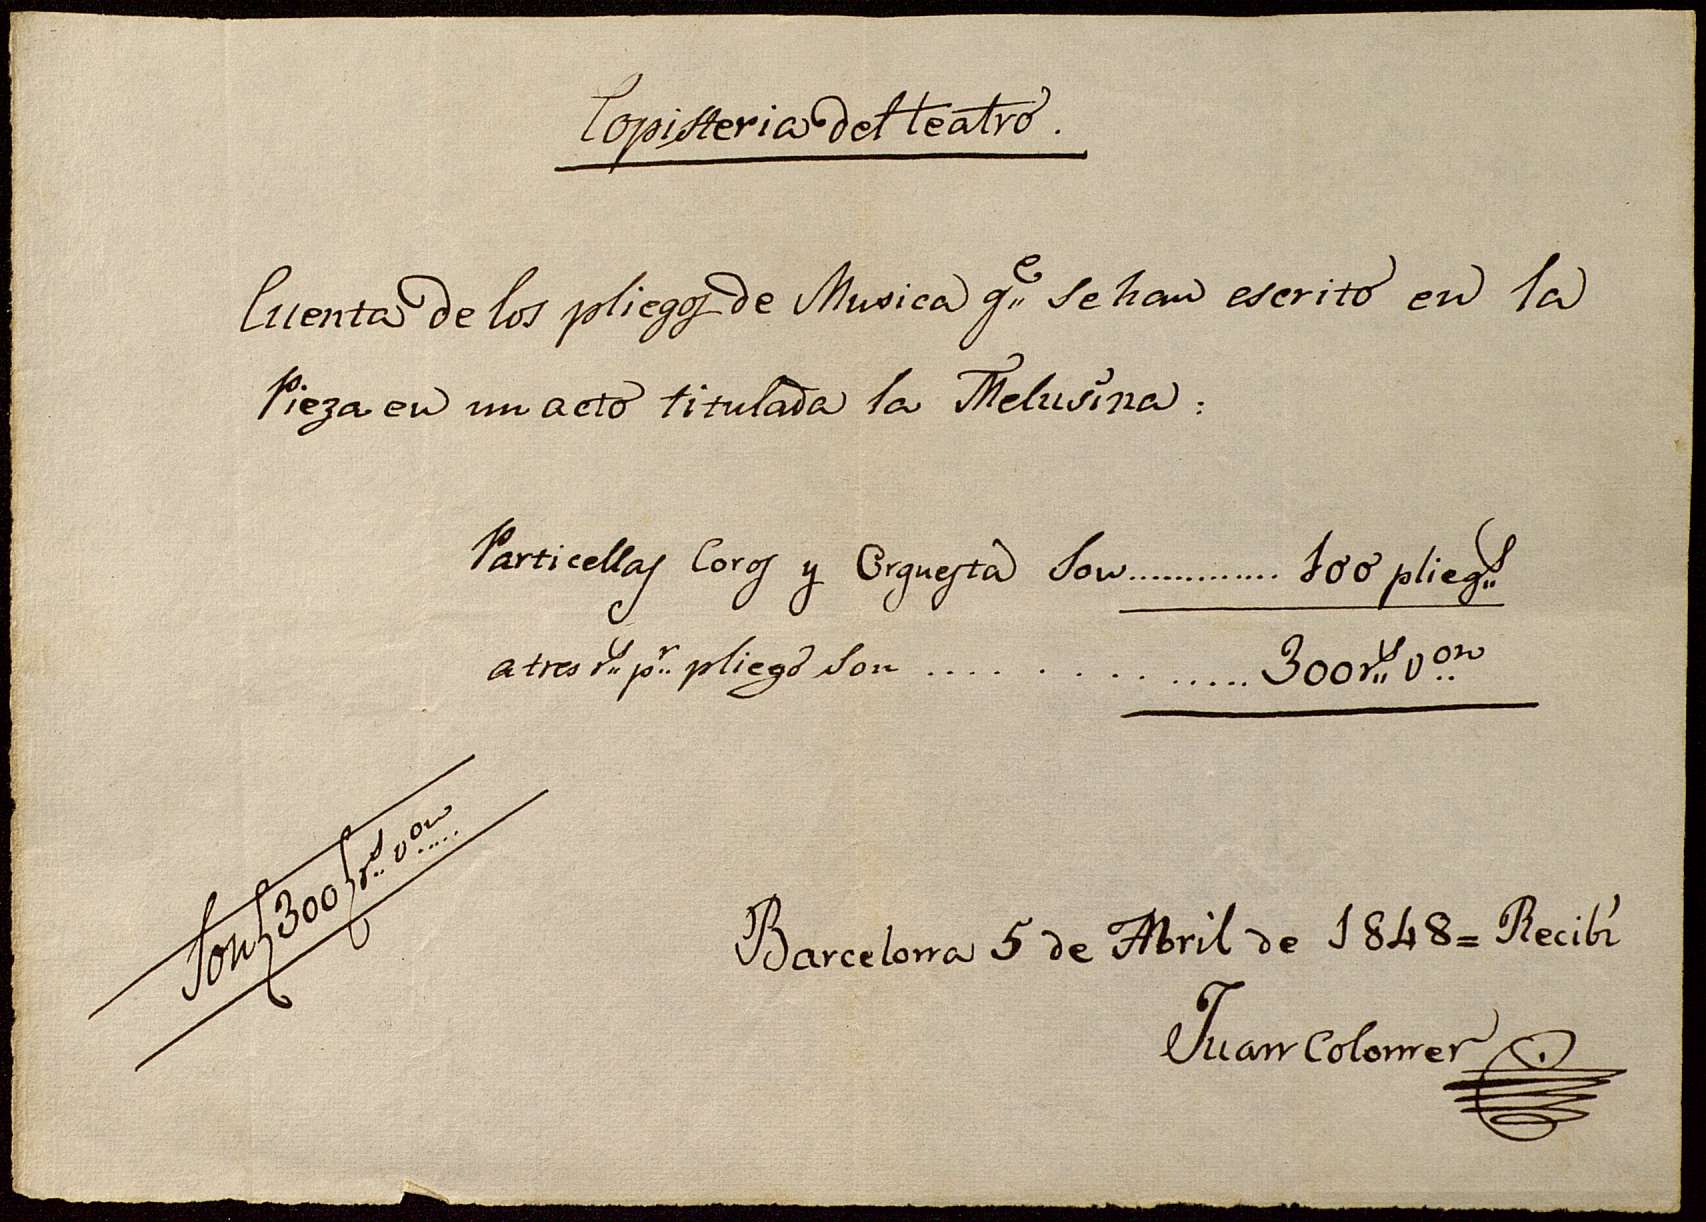 Copisteria del teatro.
Cuenta de los pliegos de Musica q.e se han escrito en la
Pieza en un acto titulada la Melusina:
Particellas Coros y Orquesta Son............. 100 plieg.s
a tres r.s p.r pliego son .............. 300 r.s v.on
Son{300}r.s v.on
Barcelona 5 de Abril de 1848= Recibí
Juan Colomer